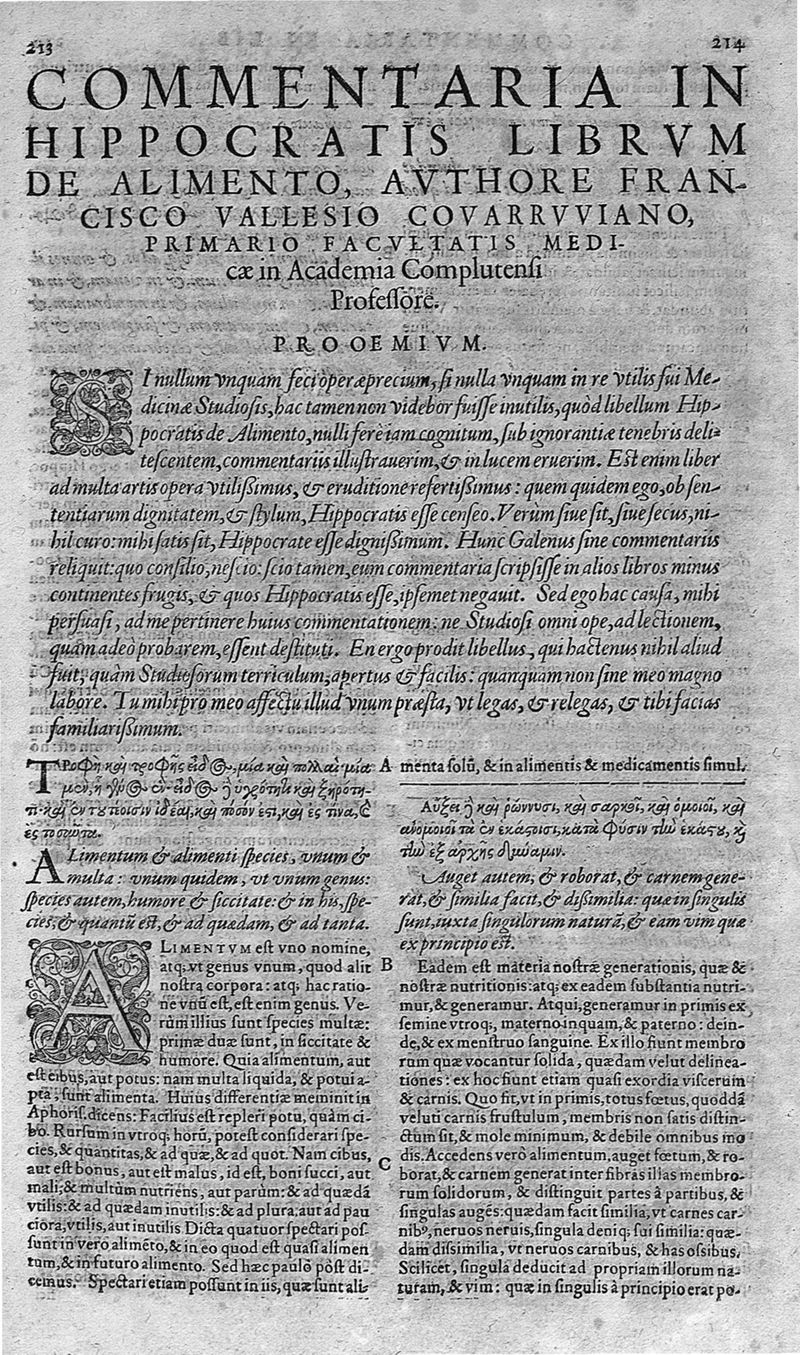 213
214
COMMENTARIA IN
HIPPOCRATIS LIBRVM
DE ALIMENTO, AVTHORE FRAN-
CISCO VALLESIO COVARRVVIANO,
PRIMARIO FACVLTATIS MEDI-
cæ in Academia Complutensi
Professore.
PROOEMIVM.
SI nullum vnquam feci operæprecium, si nulla vnquam in re vtilis fui Me-
dicinæ Studiosis, hac tamen non videbor fuisse inutilis, quòd libellum Hip-
pocratis de Alimento, nulli ferè iam cognitum, sub ignorantiæ tenebris deli-
tescentem, commentariis illustrauerim, & in lucem eruerim. Est enim liber
ad multa artis opera vtilissimus, & eruditione refertissimus: quem quidem ego, ob sen-
tentiarum dignitatem, & stylum, Hippocratis esse censeo. Verùm siue sit, siue secus, ni-
hil curo: mihi satis sit, Hippocrate esse dignissimum. Hunc Galenus sine commentariis
reliquit: quo consilio, nescio: scio tamen, eum commentaria scripsisse in alios libros minus
continentes frugis, & quos Hippocratis esse, ipsemet negauit. Sed ego hac causa, mihi
persuasi, ad me pertinere huius commentationem: ne Studiosi omni ope, ad lectionem,
quam adeò probarem, essent destituti. En ergo prodit libellus, qui hactenus nihil aliud
fuit, quàm Studiosorum terriculum, apertus & facilis: quanquam non sine meo magno
labore. Tu mihi pro meo affectu illud vnum præsta, vt legas, & relegas, & tibi facias
familiarissimum.
ΤΡοφὴ καὶ τροφῆς εἶδος, μία καὶ πολλαὶ· μία
μὲν, ᾗ γένος ἓν· εἶδος ἢ ὑγρότητι καὶ ξηρότη-
τι· καὶ ἐν τουτέοισιν ἰδέαι, καὶ πόσον ἐστι, καὶ ἐς τίνα, &
ἐς τοσαῦτα.
ALimentum & alimenti species, vnum &
multa: vnum quidem, vt vnum genus:
species autem, humore & siccitate: & in his, spe-
cies, & quantũ est, & ad quædam, & ad tanta.
ALIMENTVM est vno nomine,
atq; vt genus vnum, quod alit
nostra corpora: atq; hac ratio-
ne vnũ est, est enim genus. Ve-
rùm illius sunt species multæ:
primæ duæ sunt, in siccitate &
humore. Quia alimentum, aut
est cibus, aut potus: nam multa liquida, & potui a-
pta, sunt alimenta. Huius differentiæ meminit in
Aphoris. dicens: Facilius est repleri potu, quàm ci-
bo. Rursum in vtroq; horũ, potest considerari spe-
cies, & quantitas, & ad quæ, & ad quot. Nam cibus,
aut est bonus, aut est malus, id est, boni succi, aut
mali; & multùm nutriens, aut parum: & ad quædã
vtilis: & ad quædam inutilis: & ad plura: aut ad pau
ciora, vtilis, aut inutilis. Dicta quatuor spectari pos
sunt in vero alimẽto, & in eo quod est quasi alimen
tum, & in futuro alimento. Sed hæc paulò pòst di-
cemus. Spectari etiam possunt in iis, quæ sunt ali-
A
menta solũ, & in alimentis & medicamentis simul.
Αὔξει ἢ καὶ ῥώννυσι, καὶ σαρκοῖ, καὶ ὁμοιοῖ, καὶ
ἀνομοιοῖ τὰ ἐν ἑκάστοισι, κατὰ φύσιν τὴν ἑκάστου, κ̀
τὴν ἐξ ἀρχῆς δύναμιν.
Auget autem, & roborat, & carnem gene-
rat, & similia facit, & dißimilia: quæ in singulis
sunt, iuxta singulorum naturã, & eam vim quæ
ex principio est.
B
Eadem est materia nostræ generationis, quæ &
nostræ nutritionis: atq; ex eadem substantia nutri-
mur, & generamur. Atqui, generamur in primis ex
semine vtroq;, materno inquam, & paterno: dein-
de, & ex menstruo sanguine. Ex illo fiunt membro
rum quæ vocantur solida, quædam velut delinea-
tiones: ex hoc fiunt etiam quasi exordia viscerum
& carnis. Quo fit, vt in primis, totus fœtus, quoddã
veluti carnis frustulum, membris non satis distin-
ctum sit, & mole minimum, & debile omnibus mo
C
dis. Accedens verò alimentum, auget fœtum, & ro-
borat, & carnem generat inter fibras illas membro-
rum solidorum, & distinguit partes à partibus, &
singulas augẽs: quædam facit similia, vt carnes car-
nibꝰ, neruos neruis, singula deniq; sui similia: quæ-
dam dissimilia, vt neruos carnibus, & has ossibus.
Scilicet, singula deducit ad propriam illorum na-
turam, & vim: quæ in singulis à principio erat po-